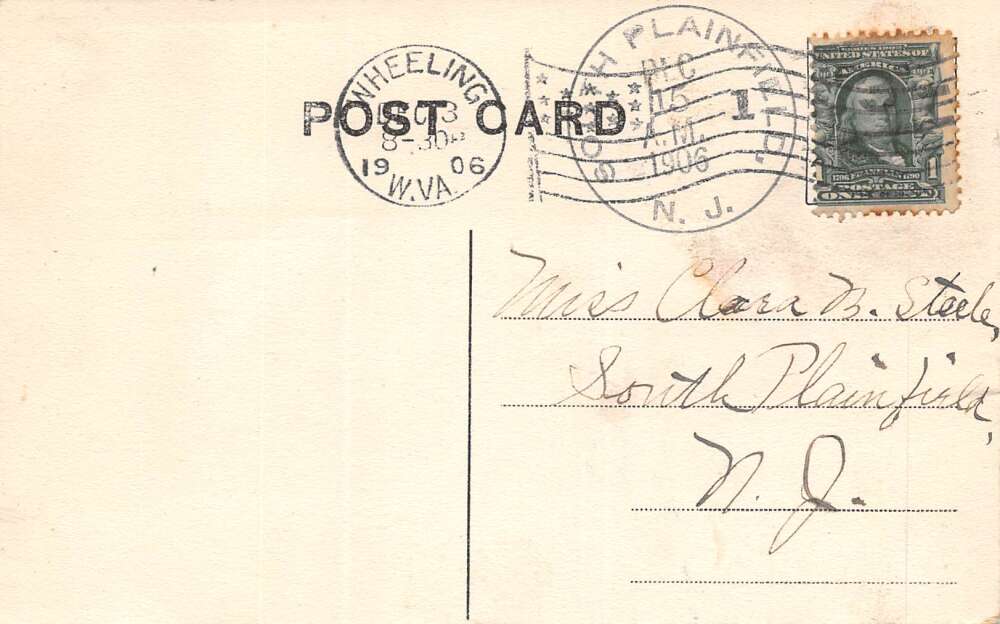 POST CARD
WHEELING
3
8-30P
19 06
W.VA
SOUTH PLAINFIELD,
DEC
15
A.M.
1906
N. J.
1
UNITED STATES OF
AMERICA
1706 FRANKLIN 1790
POSTAGE
ONE CENT
1
Miss Clara B. Steele,
South Plainfield,
N. J.